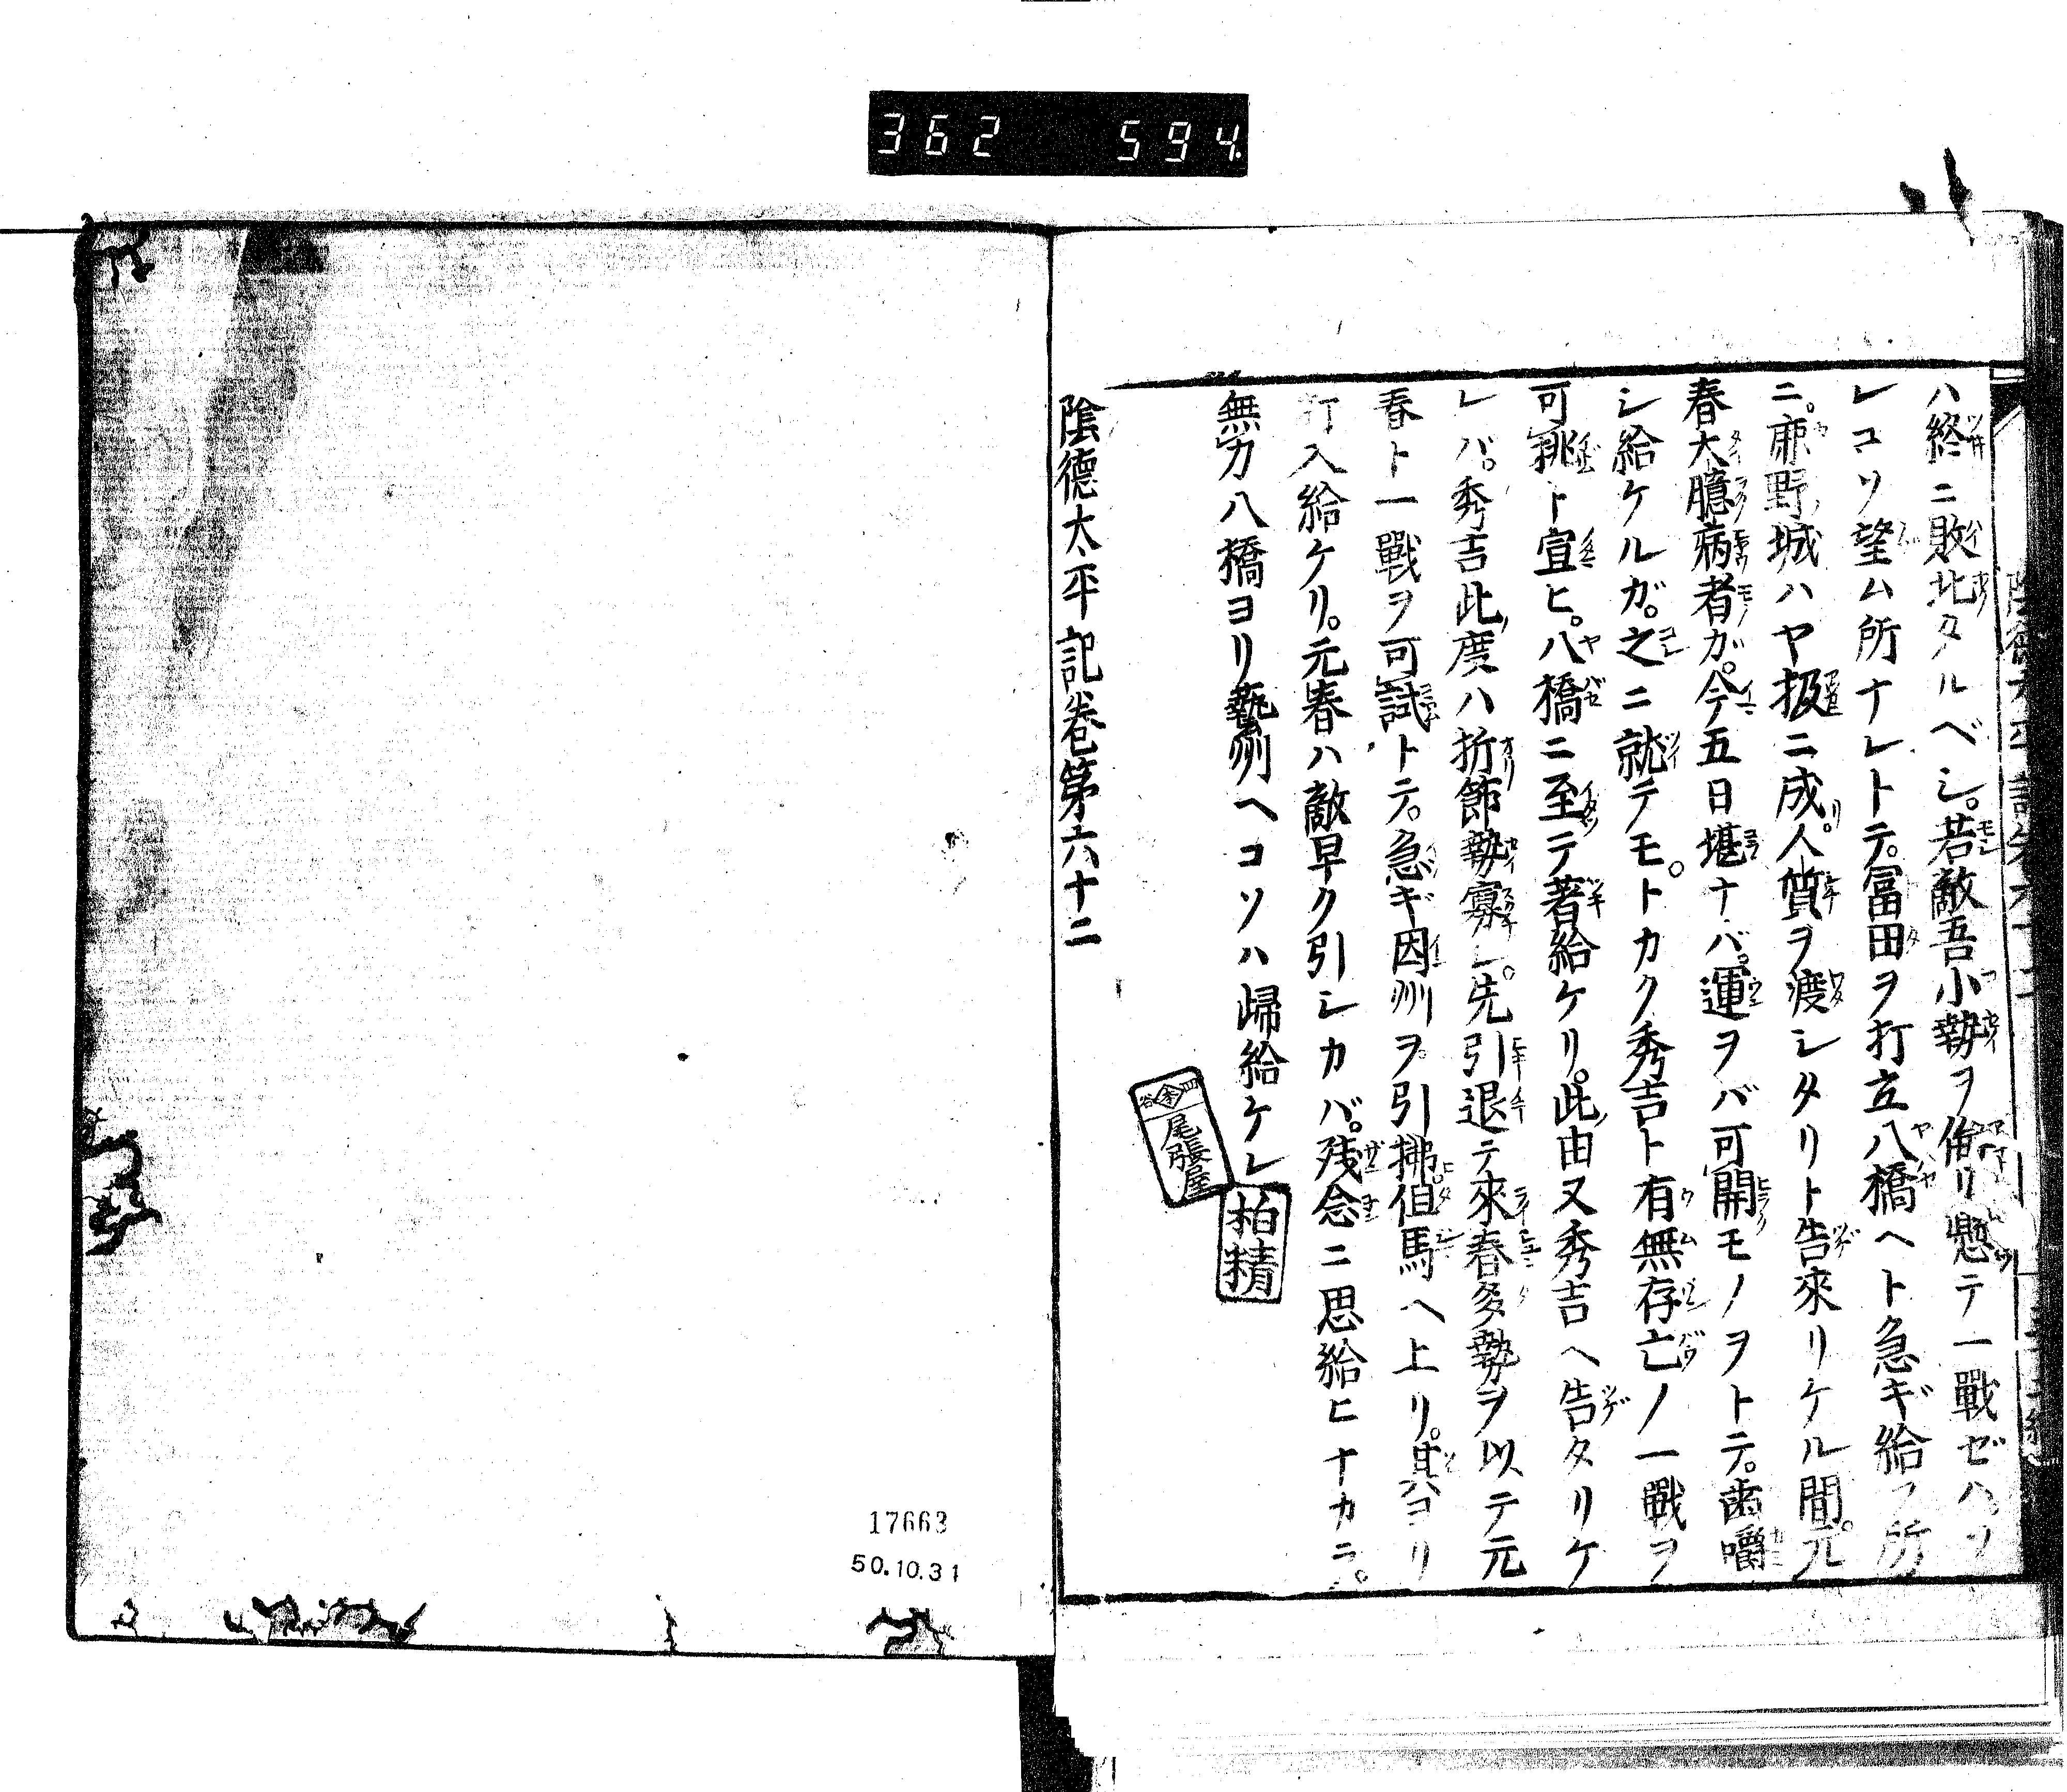 362 594
ハ終ニ敗北タルベシ。若敵吾小勢ヲ侮リ懸テ一戰ゼハソ
レコソ望ム所ナレトテ。冨田ヲ打立八橋ヘト急ギ給フ所
ニ。鹿野城ハヤ扱ニ成リ。人質ヲ渡シタリト告來リケル間。元
春大臆病者ガ。今五日堪ナバ。運ヲバ可開モノヲトテ。歯嚼
シ給ケルガ。之ニ就テモ。トカク秀吉ト有無存亡ノ一戰ヲ
可挑ト宣ヒ。八橋ニ至テ著給ケリ。此由又秀吉ヘ告タリケ
レバ。秀吉此度ハ折節勢寡シ。先引退テ來春多勢ヲ以テ元
春ト一戰ヲ可試トテ。急ギ因州ヲ引拂但馬ヘ上リ。其ヨリ
打入給ケリ。元春ハ敵早ク引シカバ。残念ニ思給ヒナカラ。
無力八橋ヨリ藝州ヘコソハ歸給ケレ
陰德太平記卷第六十二
尾張屋
柏精
17663
50.10.31